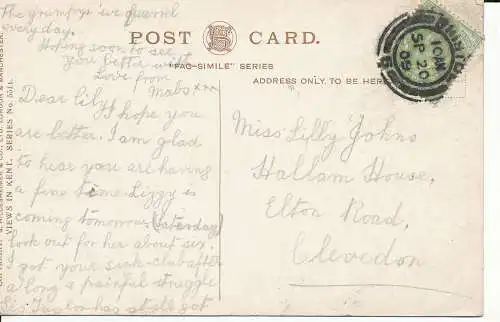 The grumpys' we quarrel
every day.
Hoping soon to see
you better with
Love from
Mabs xxx
POST CARD.
"FAC-SIMILE" SERIES
ADDRESS ONLY TO BE HERE
10 AM
SP 20
09
Dear Lily I hope you
are better. I am glad
to hear you are having
a fine time Lizzy is
coming tomorrow (Saturday)
look out for her about six.
I got your sick-club after
a long & painful struggle
has still got
Miss Lilly Johns
Hallam House,
Elton Road,
Clevedon
VIEWS IN KENT. SERIES No.
LTD. LONDON & MANCHESTER